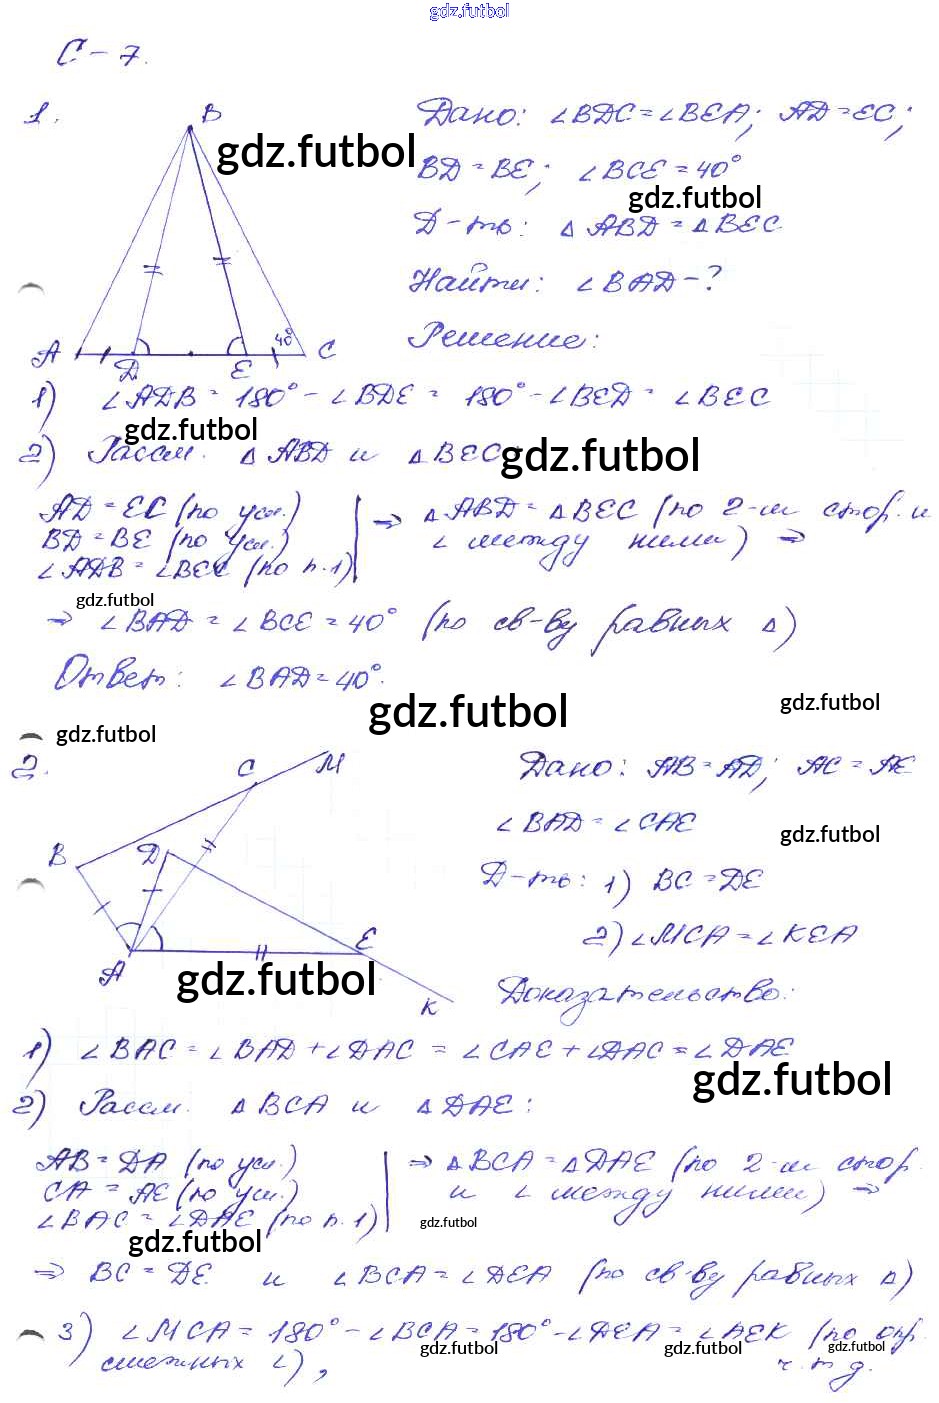 gdz.futbol
С-7.
1.
B
A
D
E
C
40°
Дано: ∠BDC = ∠BEA; AD = EC;
gdz.futbol
BD = BE; ∠BCE = 40°
gdz.futbol
Д-ть: △ABD = △BEC
Найти: ∠BAD - ?
Решение:
1) ∠ADB = 180° - ∠BDE = 180° - ∠BED = ∠BEC
gdz.futbol
2) Рассм. △ABD и △BEC:
gdz.futbol
AD = EC (по усл.)
BD = BE (по усл.)
∠ADB = ∠BEC (по п.1)
⇒ △ABD = △BEC (по 2-м стор. и
∠ между ними) ⇒
gdz.futbol
⇒ ∠BAD = ∠BCE = 40° (по св-ву равных △)
Ответ: ∠BAD = 40°.
gdz.futbol
gdz.futbol
gdz.futbol
2.
C
M
B
D
A
E
K
gdz.futbol
Дано: AB = AD; AC = AE
∠BAD = ∠CAE
gdz.futbol
Д-ть: 1) BC = DE
2) ∠MCA = ∠KEA
Доказательство:
1) ∠BAC = ∠BAD + ∠DAC = ∠CAE + ∠DAC = ∠DAE
gdz.futbol
2) Рассм. △BCA и △DAE:
AB = DA (по усл.)
CA = AE (по усл.)
∠BAC = ∠DAE (по п.1)
⇒ △BCA = △DAE (по 2-м стор.
и ∠ между ними) ⇒
gdz.futbol
gdz.futbol
⇒ BC = DE и ∠BCA = ∠DEA (по св-ву равных △)
3) ∠MCA = 180° - ∠BCA = 180° - ∠DEA = ∠AEK (по опр.
gdz.futbol
gdz.futbol
gdz.futbol
смежных ∠), ч.т.д.